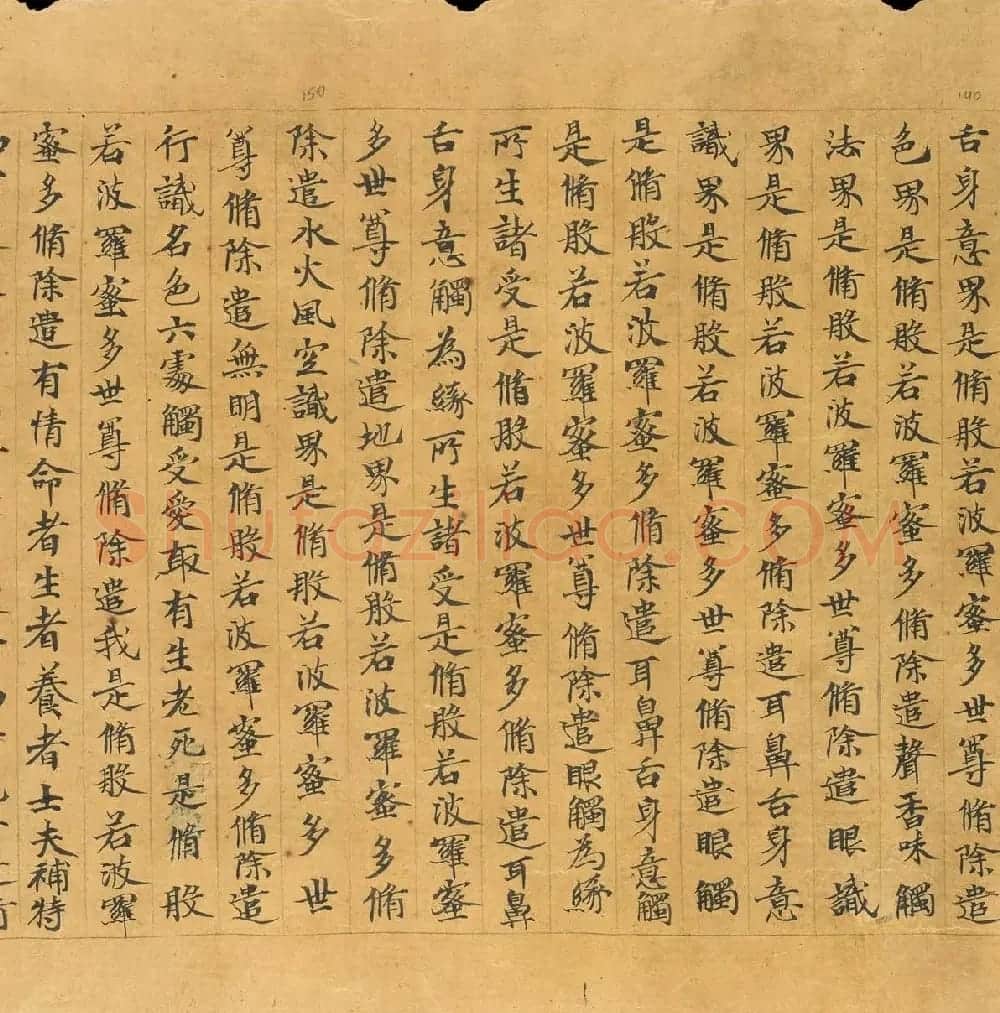 140
舌身意界是脩般若波羅蜜多世尊脩除遣
色界是脩般若波羅蜜多脩除遣聲香味觸
法界是脩般若波羅蜜多世尊脩除遣眼識
界是脩般若波羅蜜多脩除遣耳鼻舌身意
識界是脩般若波羅蜜多世尊脩除遣眼觸
是脩般若波羅蜜多脩除遣耳鼻舌身意觸
是脩般若波羅蜜多世尊脩除遣眼觸為緣
所生諸受是脩般若波羅蜜多脩除遣耳鼻
舌身意觸為緣所生諸受是脩般若波羅蜜
多世尊脩除遣地界是脩般若波羅蜜多脩
150
除遣水火風空識界是脩般若波羅蜜多世
尊脩除遣無明是脩般若波羅蜜多脩除遣
行識名色六處觸受愛取有生老死是脩般
若波羅蜜多世尊脩除遣我是脩般若波羅
蜜多脩除遣有情命者生者養者士夫補特
shufaziliao.com